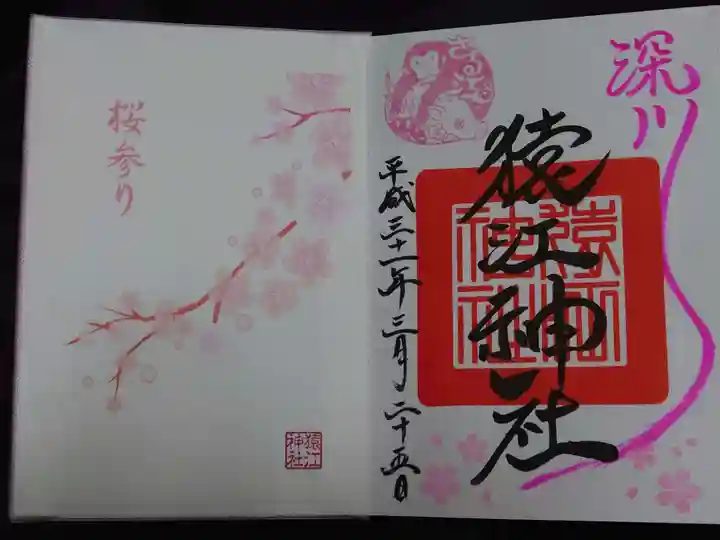 深川
猿江神社
猿江
神社
さるえ
平成三十一年三月二十五日
桜参り
猿江
神社